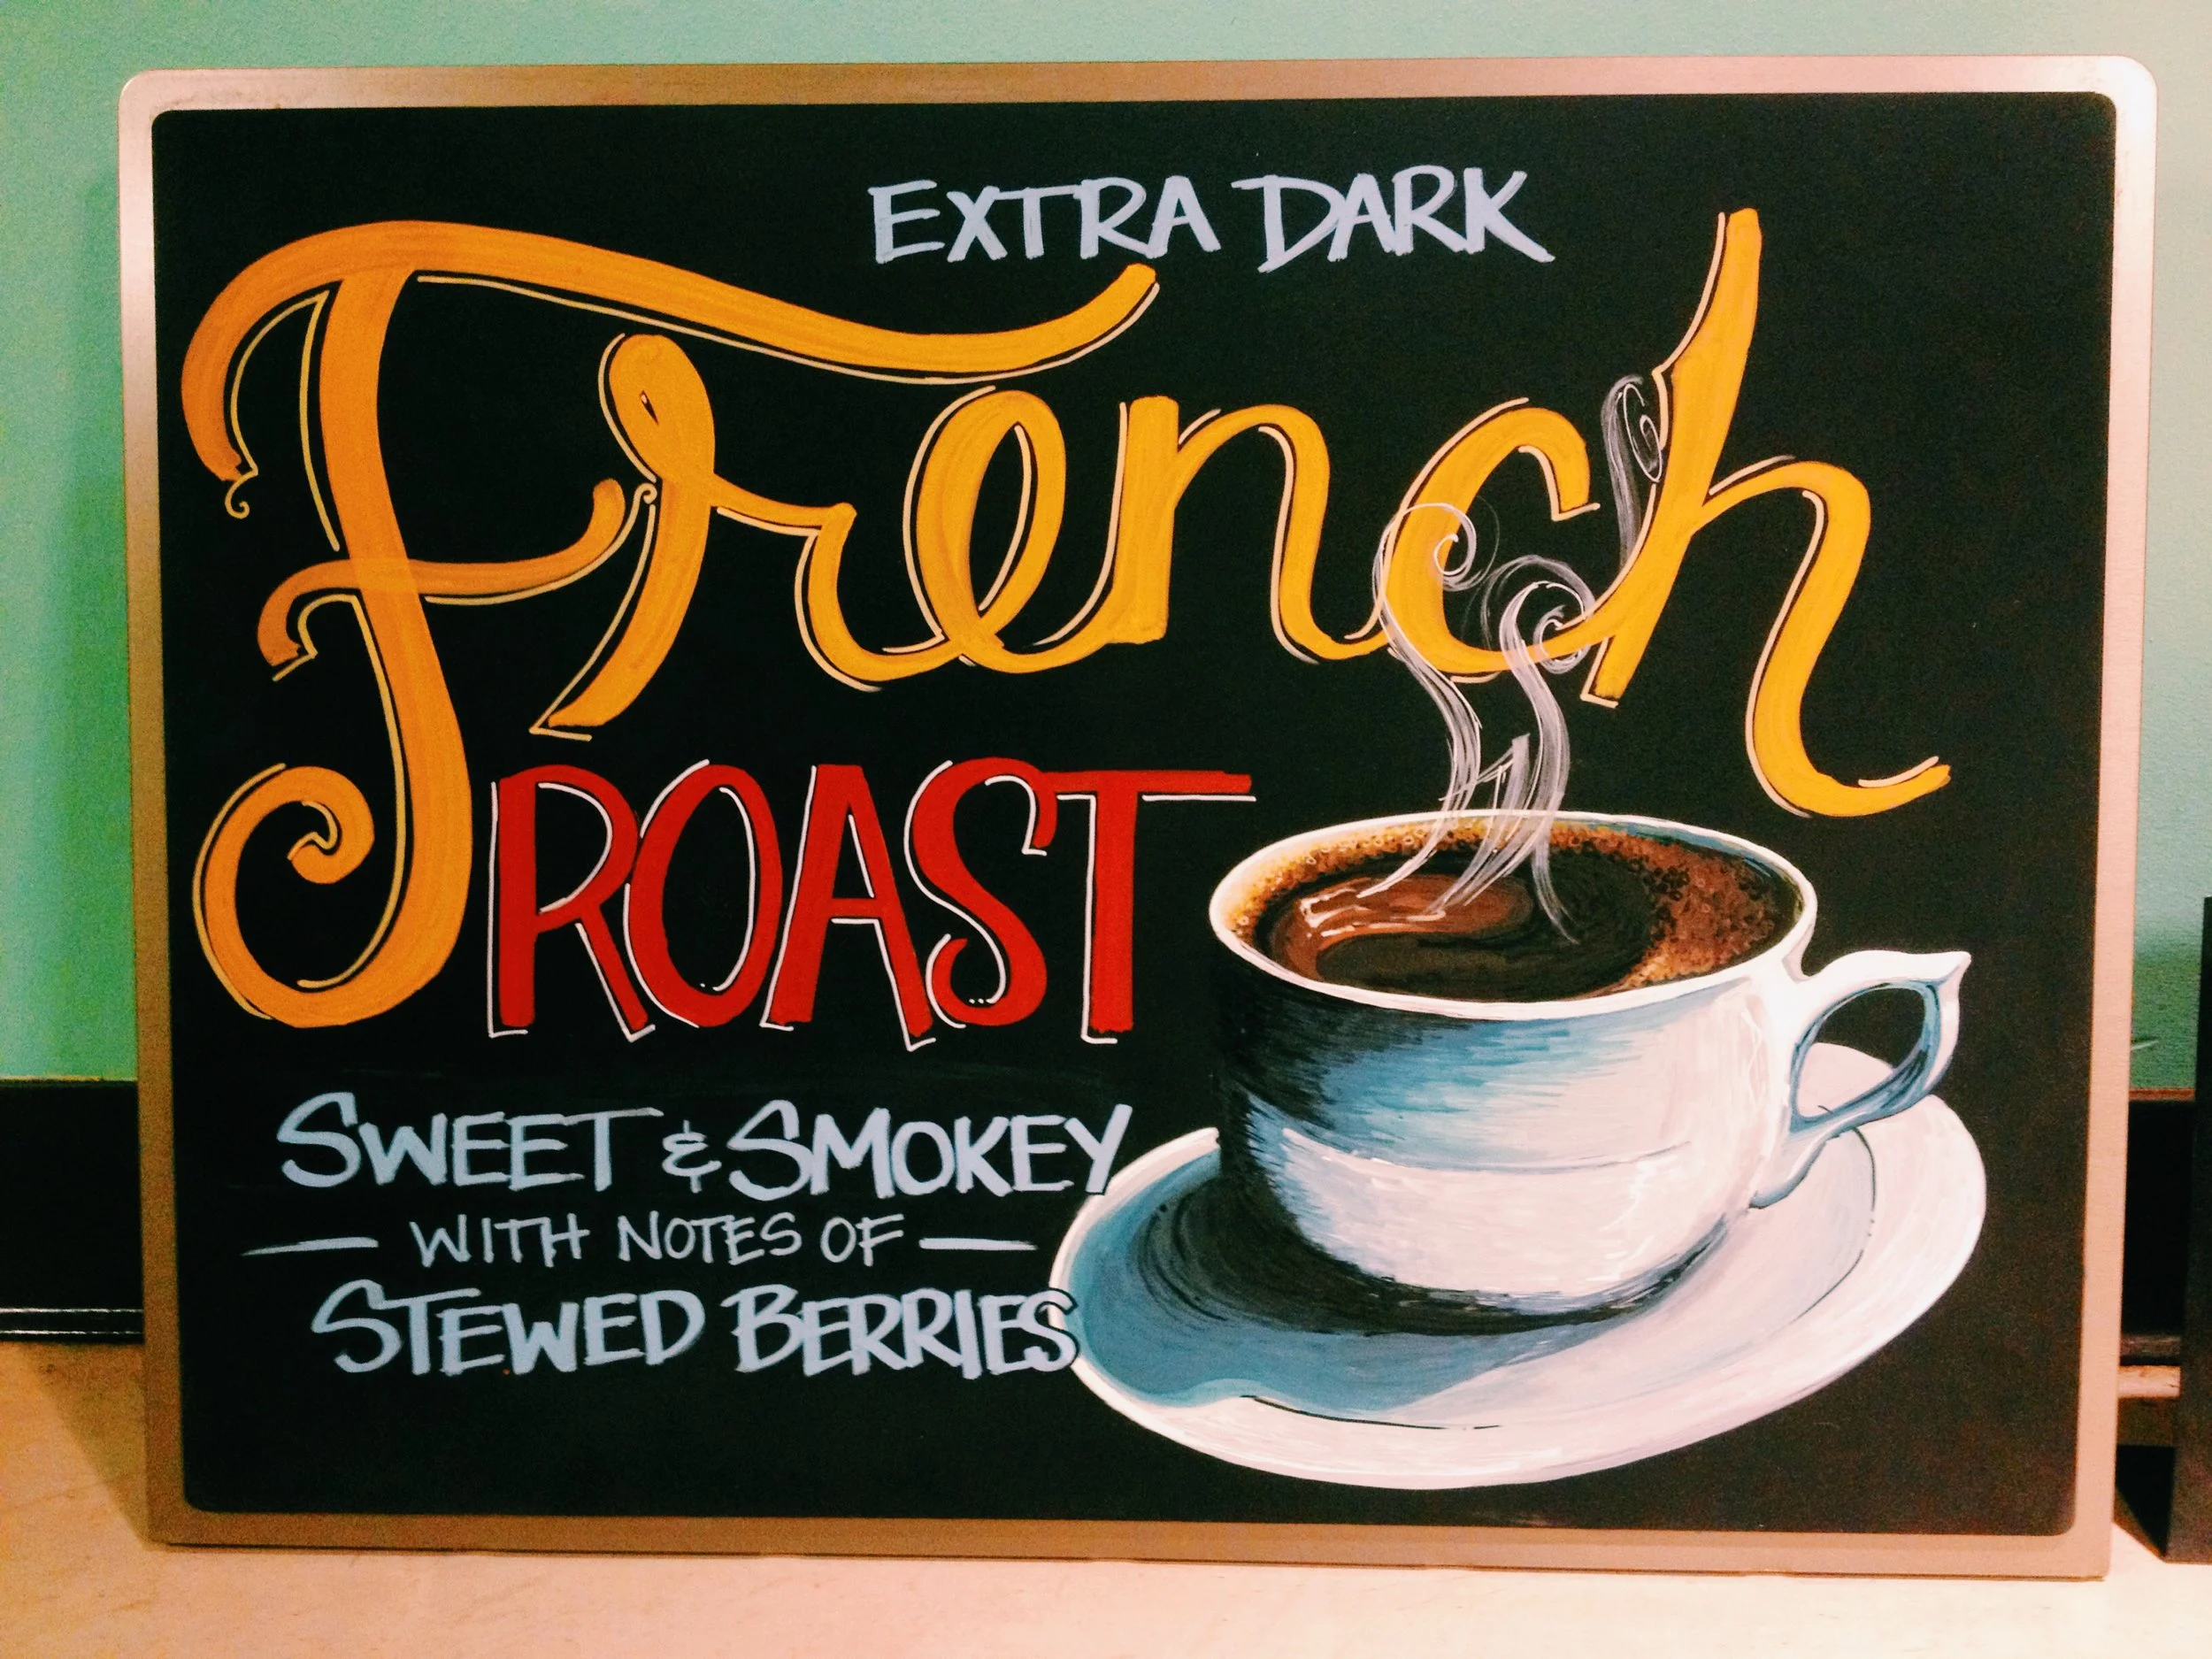 EXTRA DARK
French
ROAST
SWEET & SMOKEY
— WITH NOTES OF —
STEWED BERRIES